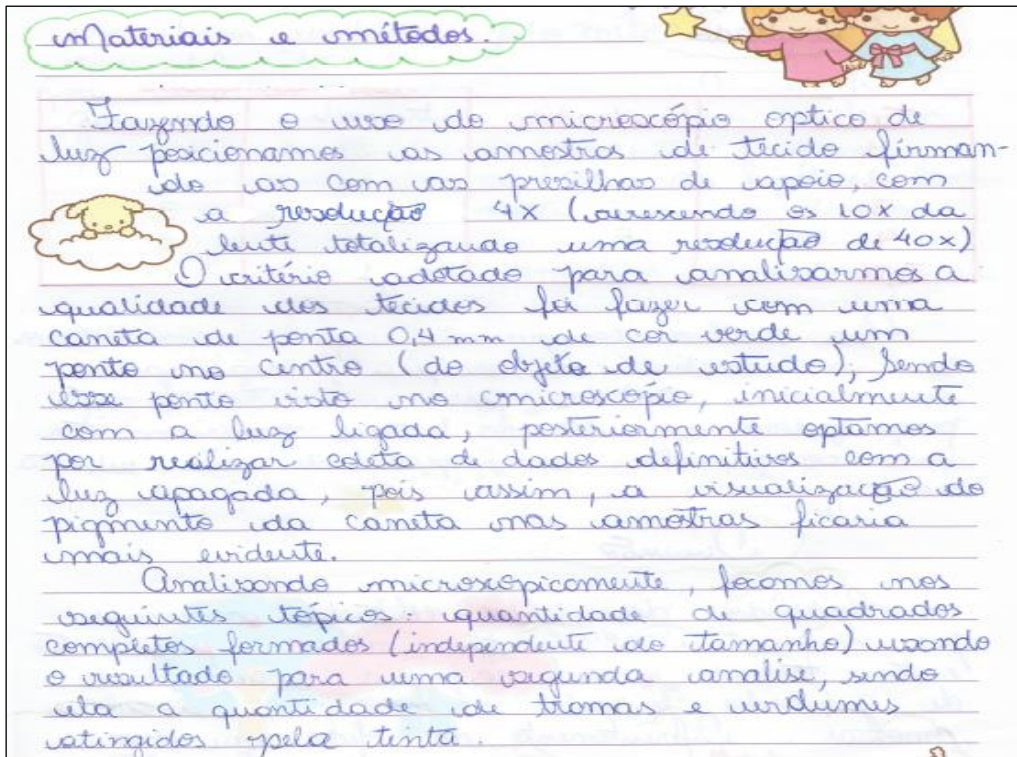 Materiais e métodos.
Fazendo o uso do microscópio optico de
luz posicionamos as amostras de tecido firman-
do as com as presilhas de apoio, com
a resolução 4x (acrescendo os 10x da
lente totalizando uma resolução de 40x)
O critério adotado para analisarmos a
qualidade dos tecidos foi fazer com uma
caneta de ponta 0,4 mm de cor verde um
ponto no centro (do objeto de estudo), sendo
esse ponto visto no microscópio, inicialmente
com a luz ligada, posteriormente optamos
por realizar coleta de dados definitivos com a
luz apagada, pois assim, a visualização do
pigmento da caneta nas amostras ficaria
mais evidente.
Analisando microscopicamente, focamos nos
seguintes tópicos: quantidade de quadrados
completos formados (independente do tamanho) usando
o resultado para uma segunda analise, sendo
esta a quantidade de tramas e urdumes
atingidos pela tinta.